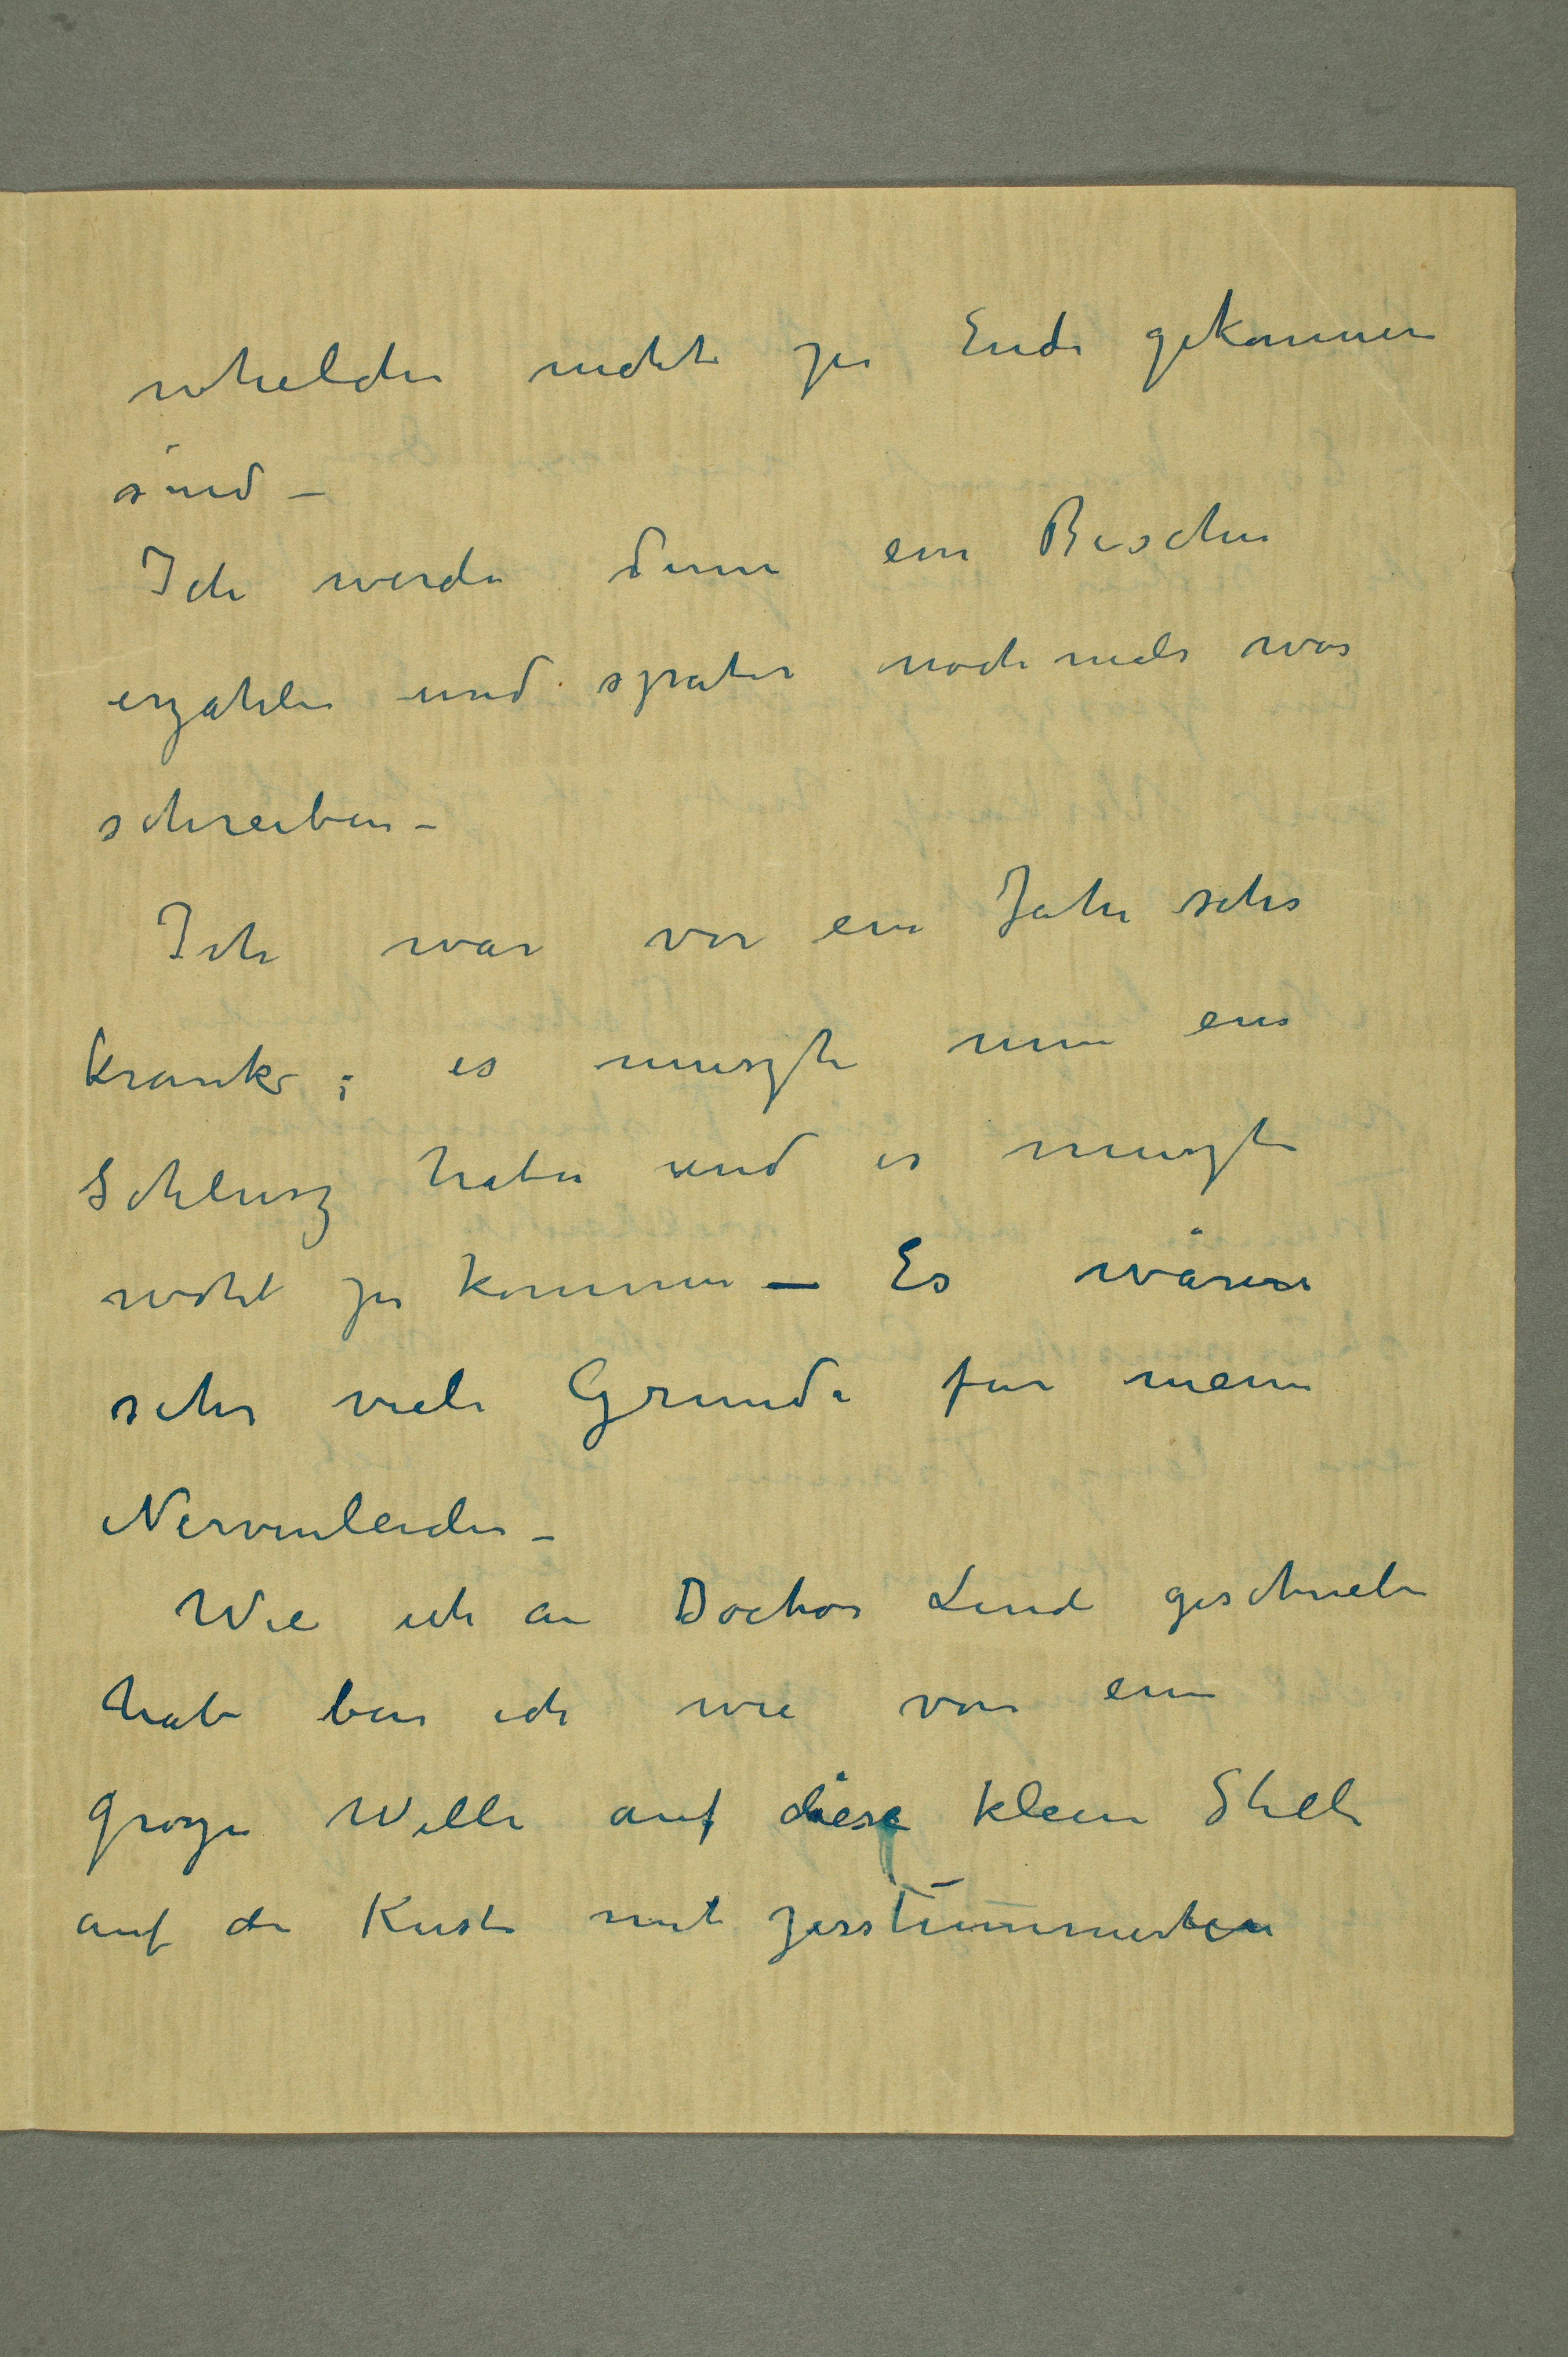 whelche nicht zu Ende gekommen
sind –
Ich werde Ihnen ein Bischen
erzahlen und später nochmals was
schreiben –
Ich war vor ein Jahr sehr
krank; es muszte nun ein
Schlusz haben und es muszte
wohl zu kommen — Es wären
sehr viele Grunde für meine
Nervenleiden –
Wie ich an Doctor Linde geschrieben
habe bin ich wie von eine
grosze Welle auf diese kleine Stelle
auf die Kuste mit zerstümmerten